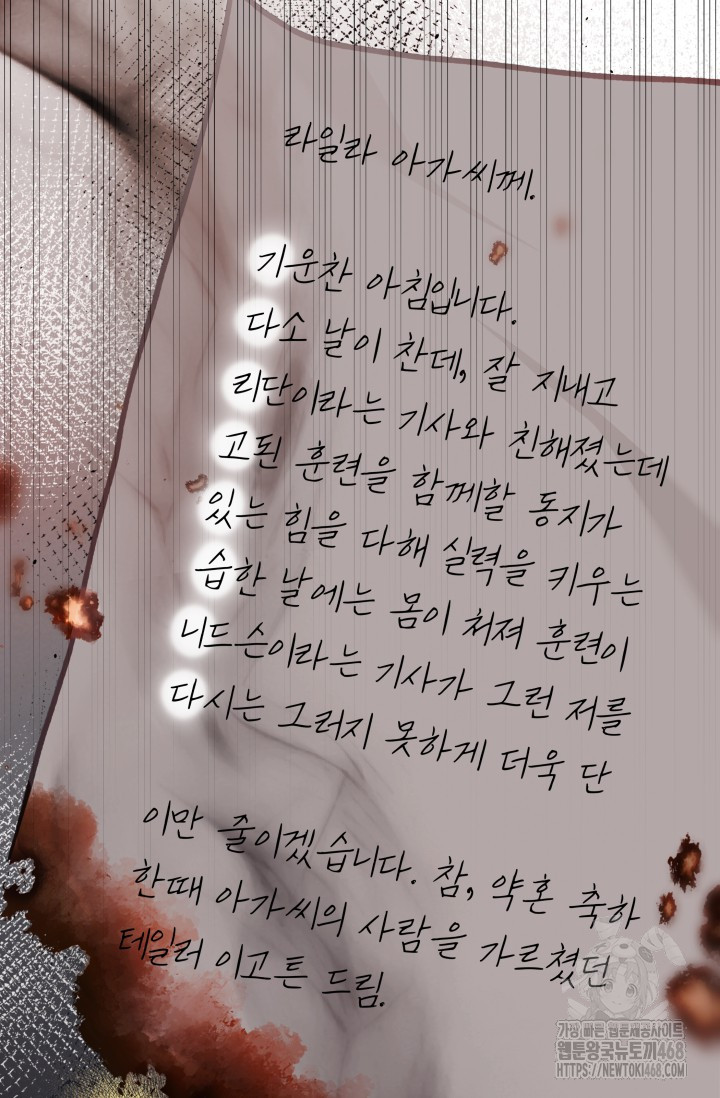 라일라 아가씨께.
기운찬 아침입니다.
다소 날이 찬데, 잘 지내고
리단이라는 기사와 친해졌는데
고된 훈련을 함께할 동지가
있는 힘을 다해 실력을 키우는
습한 날에는 몸이 처져 훈련이
니드슨이라는 기사가 그런 저를
다시는 그러지 못하게 더욱 단
이만 줄이겠습니다. 참, 약혼 축하
한때 아가씨의 사람을 가르쳤던
테일러 이고튼 드림.
가장 빠른 웹툰제공사이트
웹툰왕국뉴토끼468
HTTPS://NEWTOKI468